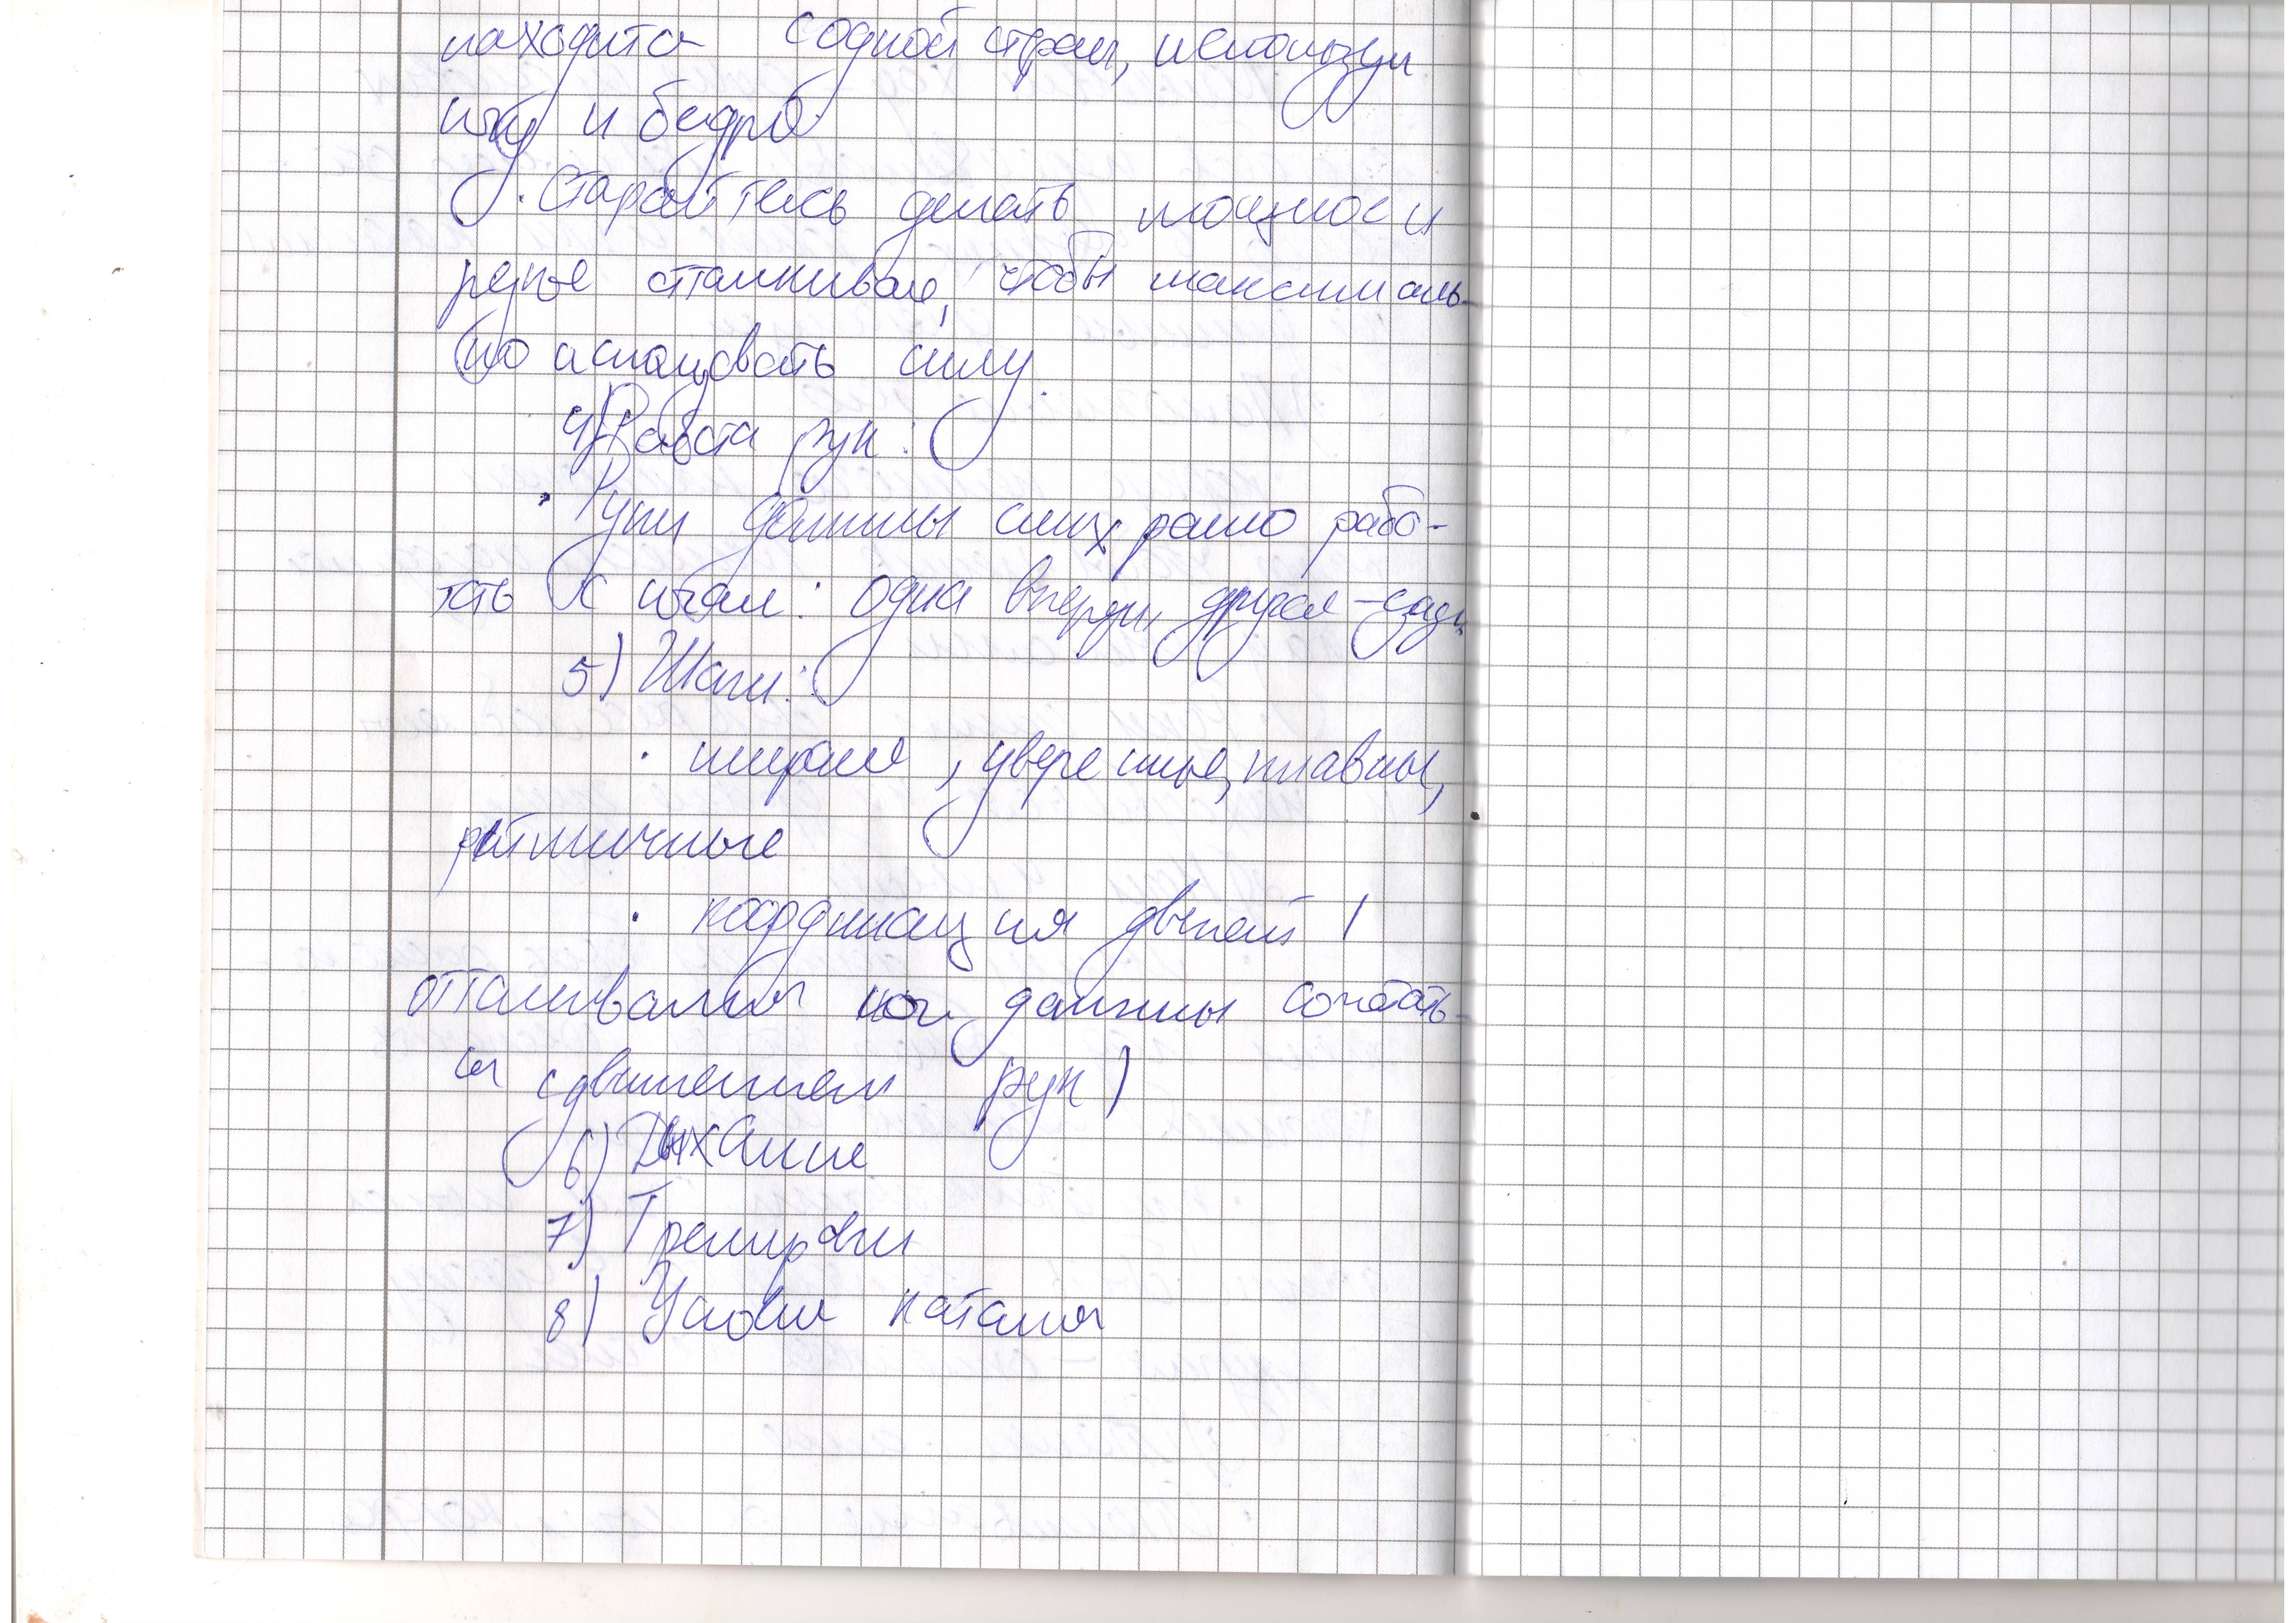 находится с одной строны, используя
ногу и бедро
. Старайтесь делать мощное и
резкое отталкивание, чтобы максималь-
но использовать силу.
4) Работа рук:
. Руки должны синхронно рабо-
тать к ногам: одна впереди, другая - сзади
5) Шаги:
. широкие, уверенные, плавные,
ритмичные
. координация движений (
отталкивания ног должны сочетать-
ся с движением рук)
6) Дыхание
7) Тренировки
8) Условия катания